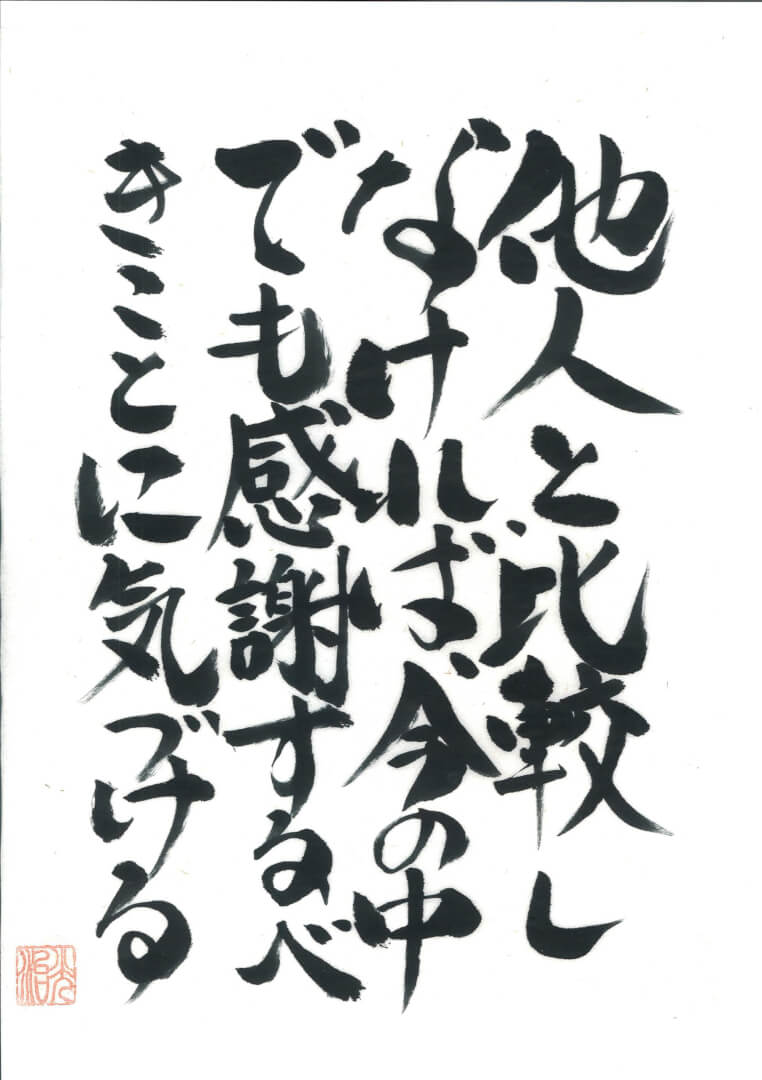 他人と比較し
なければ今の中
でも感謝するべ
きことに気づける